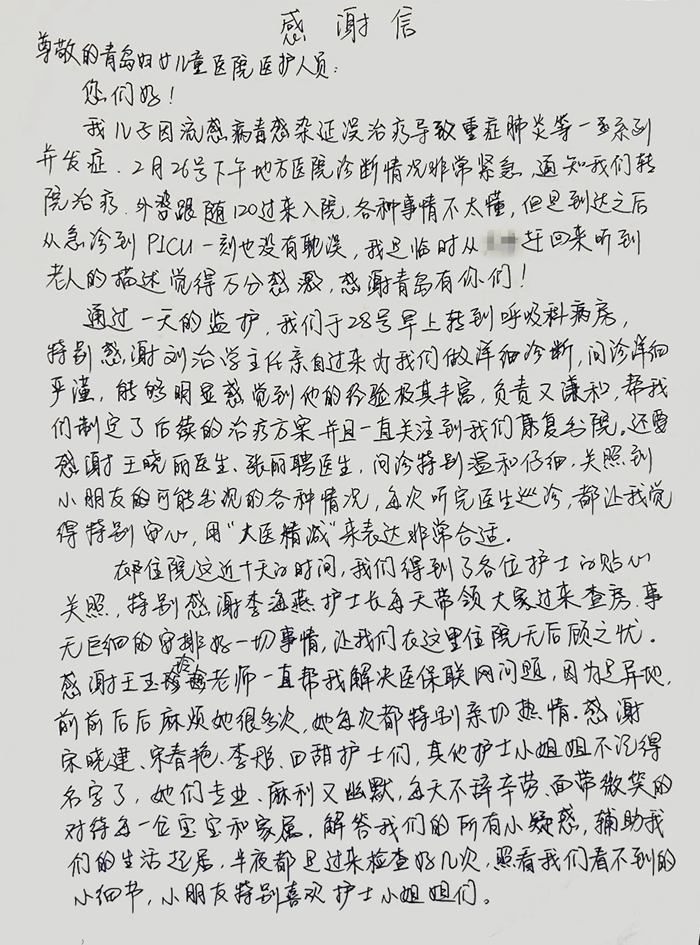 感谢信
尊敬的青岛妇女儿童医院医护人员：
您们好！
我儿子因流感病毒感染延误治疗导致重症肺炎等一系列
并发症．2月26号下午地方医院诊断情况非常紧急，通知我们转
院治疗．外婆跟随120过来入院，各种事情不太懂，但是到达之后
从急诊到PICU一刻也没有耽误，我是临时从 赶回来听到
老人的描述觉得万分感激，感谢青岛有你们！
通过一天的监护，我们于28号早上转到呼吸科病房，
特别感谢刘治学主任亲自过来为我们做详细诊断，问诊详细
严谨，能够明显感觉到他的经验极其丰富，负责又谦和，帮我
们制定了后续的治疗方案并且一直关注到我们康复出院。还要
感谢王晓丽医生、张丽聘医生，问诊特别温和仔细．关照到
小朋友的可能出现的各种情况，每次听完医生巡诊，都让我觉
得特别安心，用“大医精诚”来表达非常合适。
在住院这近十天的时间，我们得到了各位护士的贴心
关照，特别感谢李海燕护士长每天带领大家过来查房，事
无巨细的安排好一切事情，让我们在这里住院无后顾之忧．
感谢王玉玲老师一直帮我解决医保联网问题，因为是异地，
前前后后麻烦她很多次，她每次都特别亲切热情．感谢
宋晓建、宋春艳、李彤、田甜护士们，其他护士小姐姐不记得
名字了，她们专业、麻利又幽默，每天不辞辛劳、面带微笑的
对待每一位宝宝和家属，解答我们的所有小疑惑，辅助我
们的生活起居，半夜都是过来检查好几次，照看我们看不到的
小细节，小朋友特别喜欢护士小姐姐们。